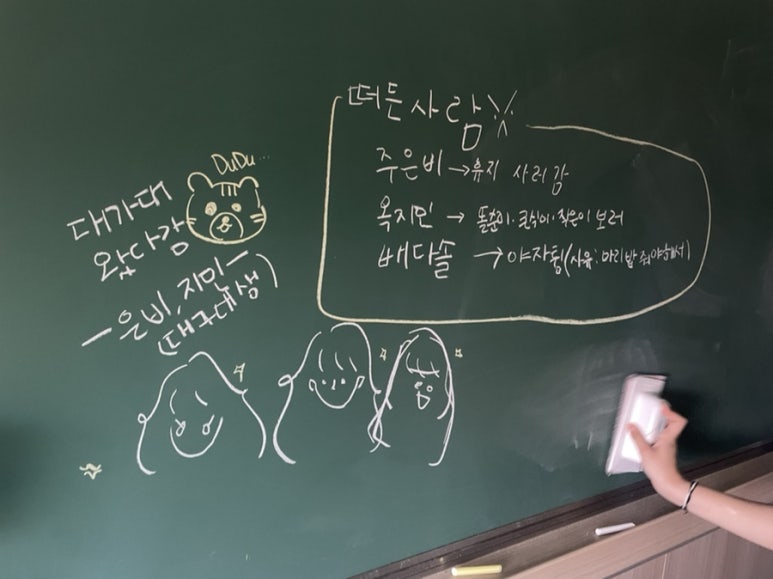 DuDu...
대가대
왔다감
- 은비, 지민 -
(대구대생)
떠든사람
주은비 → 휴지 사러 감
옥지민 → 돌춘이·큰식이·작은이 보러
배다솔 → 야자튐(사유: 마리밥 줘야해서)